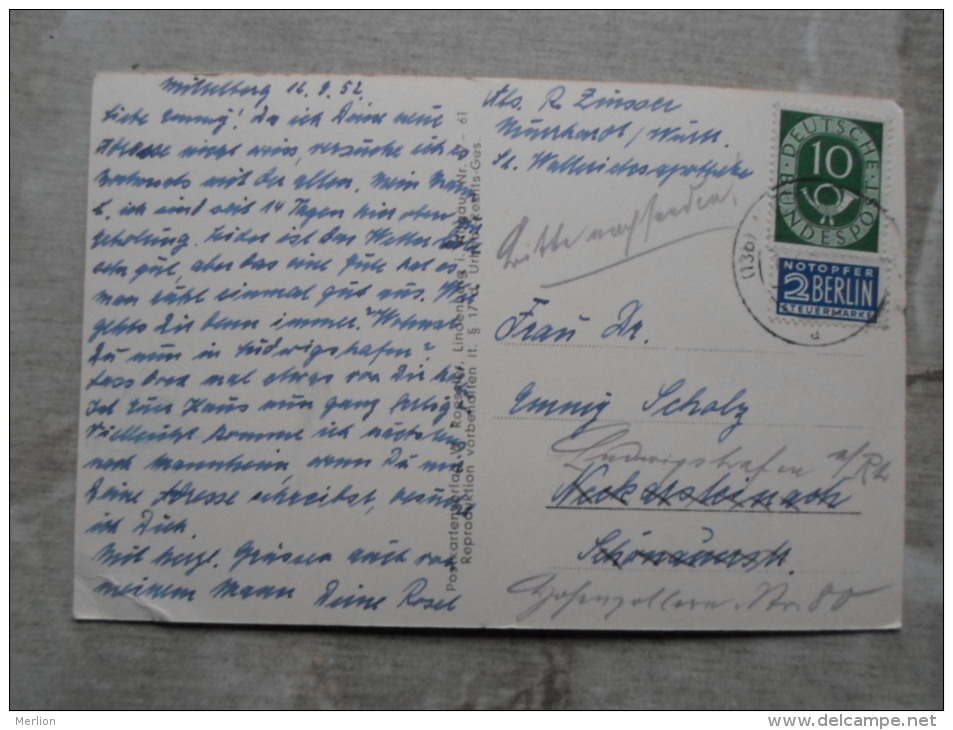 Mittelberg 12.9.52.
Liebe Emmy! Da ich Deine neue
Adresse nicht weiss, versuche ich es
nochmals mit der alten. Mein Mann
u. ich sind seit 14 Tagen hier oben
Leider ist das Wetter
sehr gut, aber das eine Gute hat es
man ruht einmal gut aus. Wie
gehts Dir denn immer? Wohnst
Du nun in Ludwigshafen?
Lass doch mal etwas von Dir
Ist Euer Haus nun ganz fertig?
Vielleicht komme ich nächstens
nach Mannheim wenn Du mir
Deine Adresse schreibst, besuche
ich Dich.
Mit herzl. Grüssen auch von
meinem Mann Deine Rosel
Postkartenverlag
Lindenberg i. Allgäu Nr.
61
Reproduktion vorbehalten lt. § 17
Ges.
Abs. R. Zinsser
Murrhardt/Württ.
St. Walterichsapotheke
Bitte nachsenden.
DEUTSCHE BUNDESPOST
10
NOTOPFER
2 BERLIN
STEUERMARKE
(13b)
a
Frau Dr.
Emmy Scholz
Ludwigshafen a/Rh
Neckarsteinach
Schönauerstr.
Hohenzollern-Str 80
Merlin
www.delcampe.net